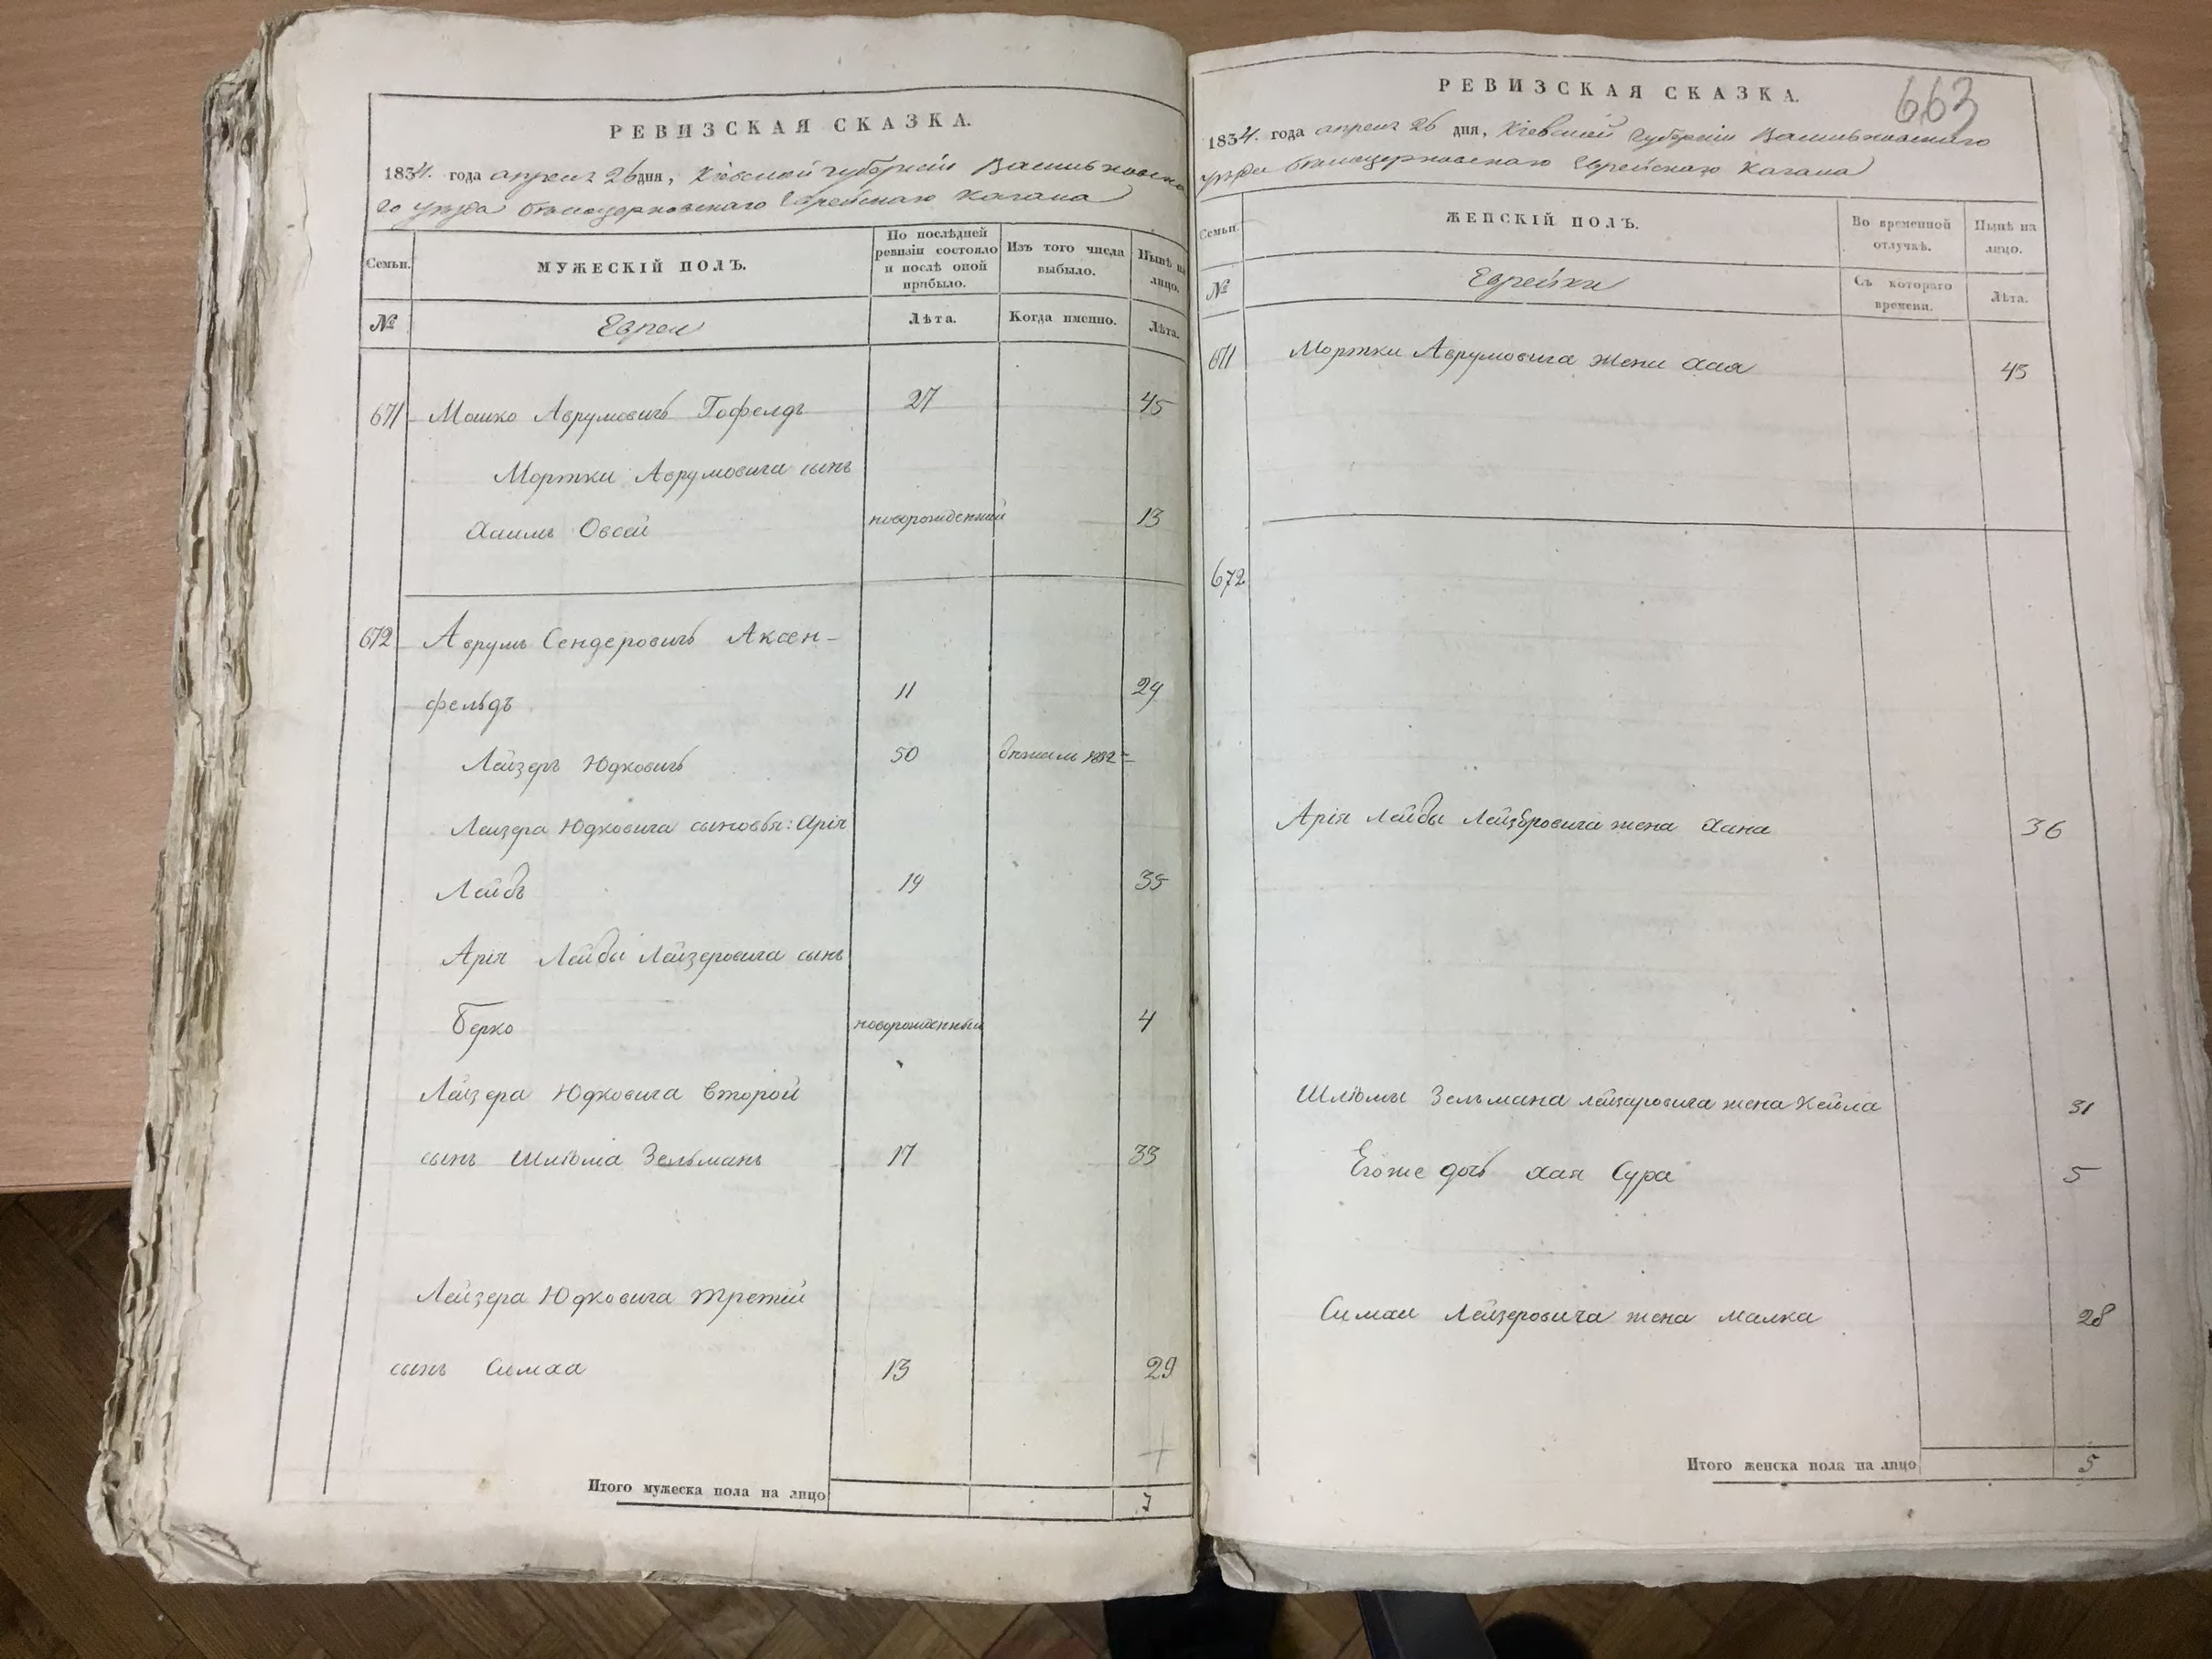 РЕВИЗСКАЯ СКАЗКА.
1834. года апреля 26 дня, Кіевской губерніи Васильковска
го уѣзда бѣлоцерковскаго Еврейскаго Кагала
Семьи.
МУЖЕСКІЙ ПОЛЪ.
По послѣдней ревизіи состояло и послѣ оной прибыло.
Изъ того числа выбыло.
Нынѣ на лицо.
№
Евреи
Лѣта.
Когда именно.
Лѣта.
671 Мошко Аврумовичъ Гофелдъ 27 45
Мортки Аврумовича сынъ
Хаимъ Овсей новорожденный 13
672 Аврумъ Сендеровичъ Аксен-
фельдъ 11 29
Лейзеръ Юдковичъ 50 бѣжалъ 1832
Лейзера Юдковича сыновья: Арія
Лейбъ 19 35
Арія Лейбы Лейзеровича сынъ
Берко новорожденный 4
Лейзера Юдковича второй
сынъ Шліома Зельманъ 17 33
Лейзера Юдковича третій
сынъ Симха 13 29
Итого мужеска пола на лицо 7
663
РЕВИЗСКАЯ СКАЗКА.
1834. года апреля 26 дня, Кіевской губерніи Васильковскаго
уѣзда бѣлоцерковскаго Еврейскаго Кагала
Семьи.
ЖЕНСКІЙ ПОЛЪ.
Во временной отлучкѣ.
Нынѣ на лицо.
№
Еврейки
Съ котораго времени.
Лѣта.
671 Мортки Аврумовича жена Хая 45
672
Арія Лейбы Лейзеровича жена Хана 36
Шліомы Зельмана Лейзеровича жена Кейла 31
Егоже дочь Хая Сура 5
Симхи Лейзеровича жена Малка 28
Итого женска пола на лицо 5